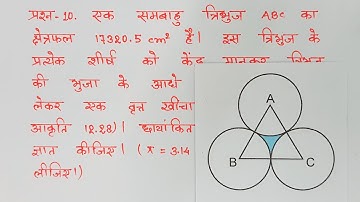 प्रश्न-10. एक समबाहु त्रिभुज ABC का
क्षेत्रफल 17320.5 cm² है। इस त्रिभुज के
प्रत्येक शीर्ष को केंद्र मानकर त्रिभुज
की भुजा के आधे
लेकर एक वृत्त खींचा
आकृति 12.28)। छायांकित
ज्ञात कीजिए। (π = 3.14
लीजिए।)
A
B
C